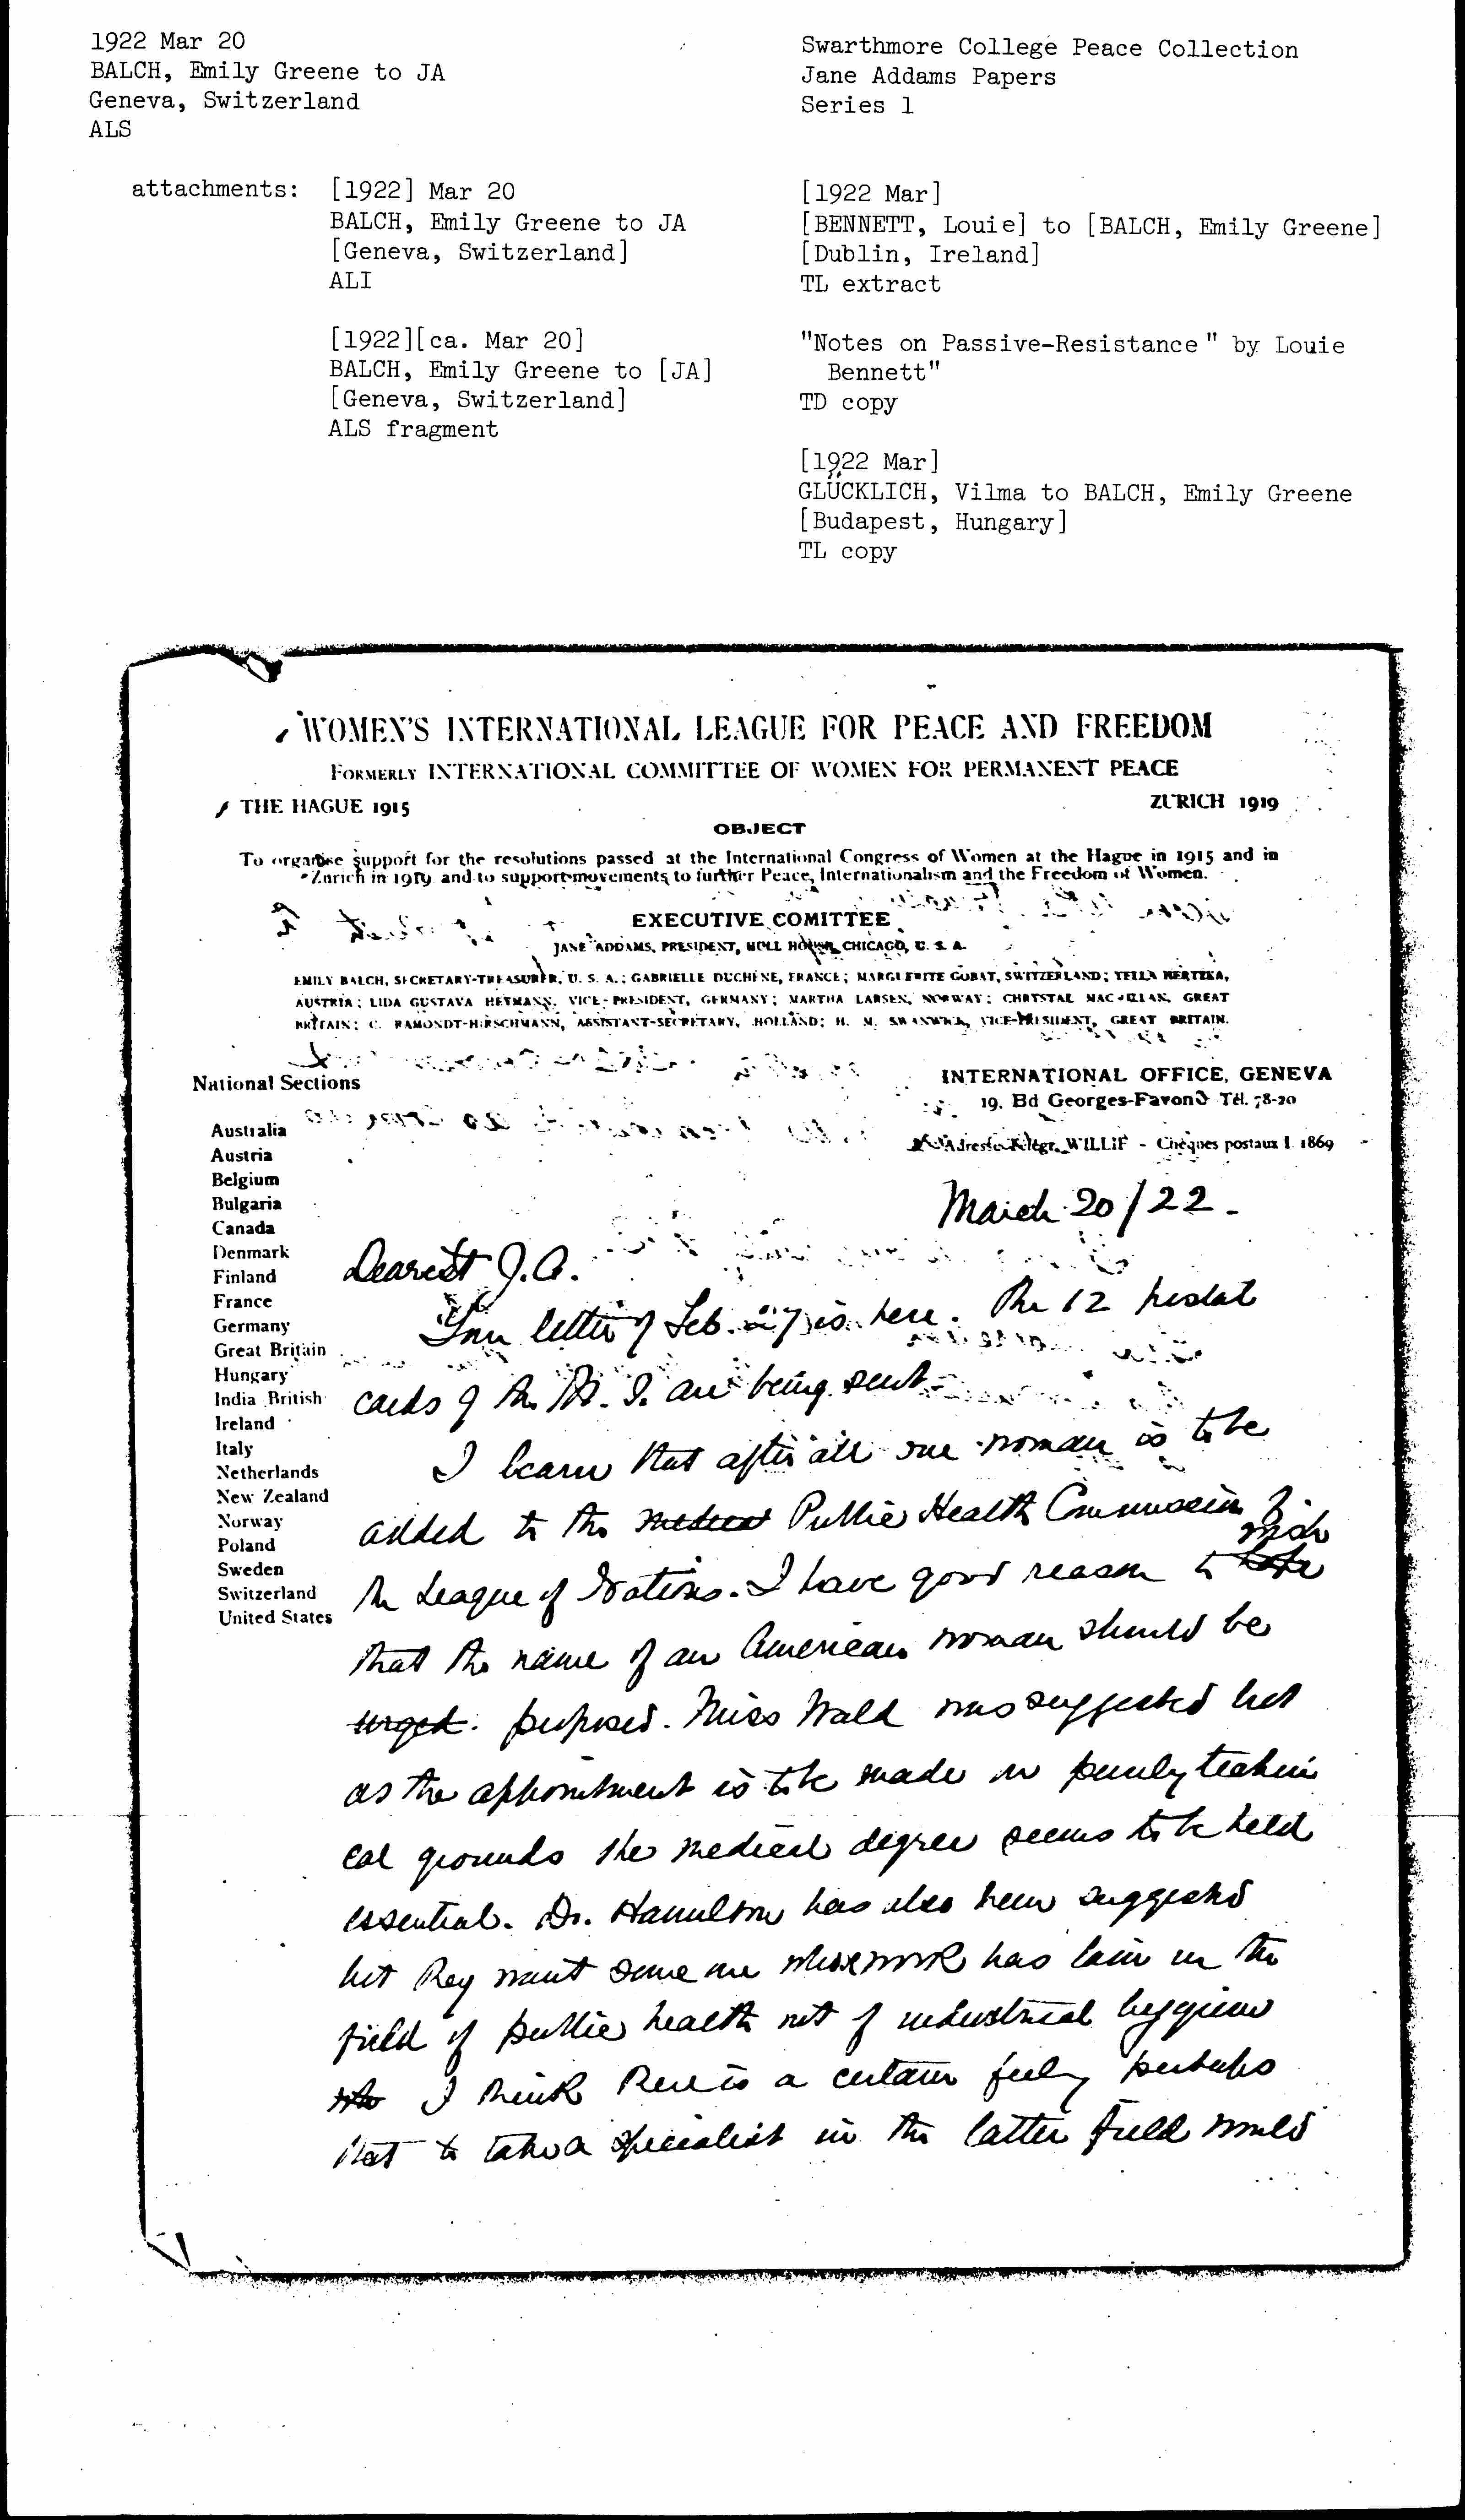 1922 Mar 20
BALCH, Emily Greene to JA
Geneva, Switzerland
ALS
Swarthmore College Peace Collection
Jane Addams Papers
Series 1
attachments:
[1922] Mar 20
BALCH, Emily Greene to JA
[Geneva, Switzerland]
ALI
[1922][ca. Mar 20]
BALCH, Emily Greene to [JA]
[Geneva, Switzerland]
ALS fragment
[1922 Mar]
[BENNETT, Louie] to [BALCH, Emily Greene]
[Dublin, Ireland]
TL extract
"Notes on Passive-Resistance" by Louie
Bennett"
TD copy
[1922 Mar]
GLÜCKLICH, Vilma to BALCH, Emily Greene
[Budapest, Hungary]
TL copy
WOMEN'S INTERNATIONAL LEAGUE FOR PEACE AND FREEDOM
FORMERLY INTERNATIONAL COMMITTEE OF WOMEN FOR PERMANENT PEACE
THE HAGUE 1915 ZURICH 1919
OBJECT
To organise support for the resolutions passed at the International Congress of Women at the Hague in 1915 and in
Zurich in 1919 and to support movements to further Peace, Internationalism and the Freedom of Women.
EXECUTIVE COMITTEE
JANE ADDAMS, PRESIDENT, HULL HOUSE, CHICAGO, U. S. A.
EMILY BALCH, SECRETARY-TREASURER, U. S. A.; GABRIELLE DUCHÊNE, FRANCE; MARGUERITE GOBAT, SWITZERLAND; YELLA HERTZKA,
AUSTRIA; LIDA GUSTAVA HEYMANN, VICE-PRESIDENT, GERMANY; MARTHA LARSEN, NORWAY; CHRYSTAL MACMILLAN, GREAT
BRITAIN; C. RAMONDT-HIRSCHMANN, ASSISTANT-SECRETARY, HOLLAND; H. M. SWANWICK, VICE-PRESIDENT, GREAT BRITAIN.
National Sections
Australia
Austria
Belgium
Bulgaria
Canada
Denmark
Finland
France
Germany
Great Britain
Hungary
India British
Ireland
Italy
Netherlands
New Zealand
Norway
Poland
Sweden
Switzerland
United States
INTERNATIONAL OFFICE, GENEVA
19, Bd Georges-Favon Tél. 78-20
Adresse Télégr. WILLIF - Chèques postaux I. 1869
March 20/22-
Dearest J.A.
Your letter of Feb. 27 is here. The 12 postal
cards of the M. I. are being sent-
I learn that after all one woman is to be
added to the medical Public Health Commission by
the League of Nations. I have good reason to hope wish
that the name of an American woman should be
urged. proposed. Miss Wald was suggested but
as the appointment is to be made on purely techni
cal grounds the medical degree seems to be held
essential. Dr. Hamilton has also been suggested
but they want some one whose work has lain in the
field of public health not of industrial hygiene
I think there is a certain feeling perhaps
that to take a specialist in the latter field would